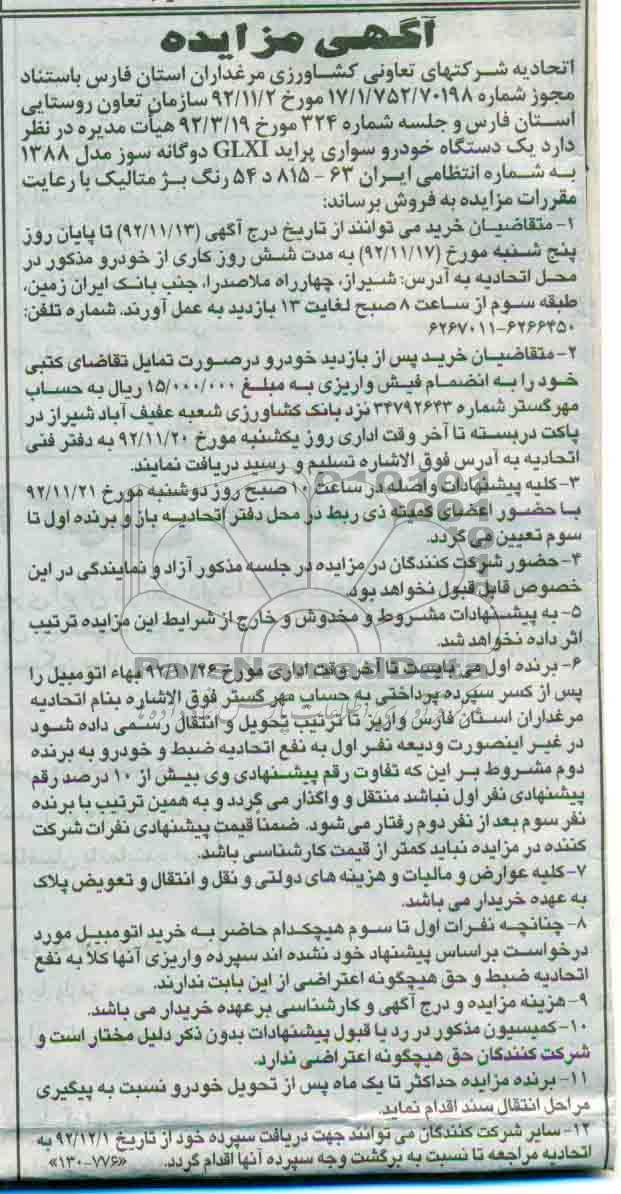 آگهی مزایده
اتحادیه شرکتهای تعاونی کشاورزی مرغداران استان فارس باستناد
مجوز شماره ۱۷/۱/۷۵۲/۷۰۱۹۸ مورخ ۹۲/۱۱/۲ سازمان تعاون روستایی
استان فارس و جلسه شماره ۳۲۴ مورخ ۹۲/۳/۱۹ هیأت مدیره در نظر
دارد یک دستگاه خودرو سواری پراید GLXI دوگانه سوز مدل ۱۳۸۸
به شماره انتظامی ایران ۶۳ - ۸۱۵ د ۵۴ رنگ بژ متالیک با رعایت
مقررات مزایده به فروش برساند:
۱- متقاضیان خرید می توانند از تاریخ درج آگهی (۹۲/۱۱/۱۳) تا پایان روز
پنج شنبه مورخ (۹۲/۱۱/۱۷) به مدت شش روز کاری از خودرو مذکور در
محل اتحادیه به آدرس: شیراز، چهارراه ملاصدرا، جنب بانک ایران زمین،
طبقه سوم از ساعت ۸ صبح لغایت ۱۳ بازدید به عمل آورند. شماره تلفن:
۶۲۶۷۰۱۱-۶۲۶۶۴۵۰
۲- متقاضیان خرید پس از بازدید خودرو درصورت تمایل تقاضای کتبی
خود را به انضمام فیش واریزی به مبلغ ۱۵/۰۰۰/۰۰۰ ریال به حساب
مهرگستر شماره ۳۴۷۹۲۶۴۳ نزد بانک کشاورزی شعبه عفیف آباد شیراز در
پاکت دربسته تا آخر وقت اداری روز یکشنبه مورخ ۹۲/۱۱/۲۰ به دفتر فنی
اتحادیه به آدرس فوق الاشاره تسلیم و رسید دریافت نمایند.
۳- کلیه پیشنهادات واصله در ساعت ۱۰ صبح روز دوشنبه مورخ ۹۲/۱۱/۲۱
با حضور اعضای کمیته ذی ربط در محل دفتر اتحادیه باز و برنده اول تا
سوم تعیین می گردد.
۴- حضور شرکت کنندگان در مزایده در جلسه مذکور آزاد و نمایندگی در این
خصوص قابل قبول نخواهد بود.
۵- به پیشنهادات مشروط و مخدوش و خارج از شرایط این مزایده ترتیب
اثر داده نخواهد شد.
ParsNamadData
۶- برنده اول می بایست تا آخر وقت اداری مورخ ۹۲/۱۱/۲۶ بهاء اتومبیل را
پس از کسر سپرده پرداختی به حساب مهر گستر فوق الاشاره بنام اتحادیه
مرغداران استان فارس واریز تا ترتیب تحویل و انتقال رسمی داده شود
در غیر اینصورت ودیعه نفر اول به نفع اتحادیه ضبط و خودرو به برنده
دوم مشروط بر این که تفاوت رقم پیشنهادی وی بیش از ۱۰ درصد رقم
پیشنهادی نفر اول نباشد منتقل و واگذار می گردد و به همین ترتیب با برنده
نفر سوم بعد از نفر دوم رفتار می شود. ضمنا قیمت پیشنهادی نفرات شرکت
کننده در مزایده نباید کمتر از قیمت کارشناسی باشد.
۷- کلیه عوارض و مالیات و هزینه های دولتی و نقل و انتقال و تعویض پلاک
به عهده خریدار می باشد.
۸- چنانچه نفرات اول تا سوم هیچکدام حاضر به خرید اتومبیل مورد
درخواست براساس پیشنهاد خود نشده اند سپرده واریزی آنها کلاً به نفع
اتحادیه ضبط و حق هیچگونه اعتراضی از این بابت ندارند.
۹- هزینه مزایده و درج آگهی و کارشناسی برعهده خریدار می باشد.
۱۰- کمیسیون مذکور در رد یا قبول پیشنهادات بدون ذکر دلیل مختار است و
شرکت کنندگان حق هیچگونه اعتراضی ندارد.
۱۱- برنده مزایده حداکثر تا یک ماه پس از تحویل خودرو نسبت به پیگیری
مراحل انتقال سند اقدام نماید.
۱۲- سایر شرکت کنندگان می توانند جهت دریافت سپرده خود از تاریخ ۹۲/۱۲/۱ به
اتحادیه مراجعه تا نسبت به برگشت وجه سپرده آنها اقدام گردد. «۷۷۶-۱۳۰»